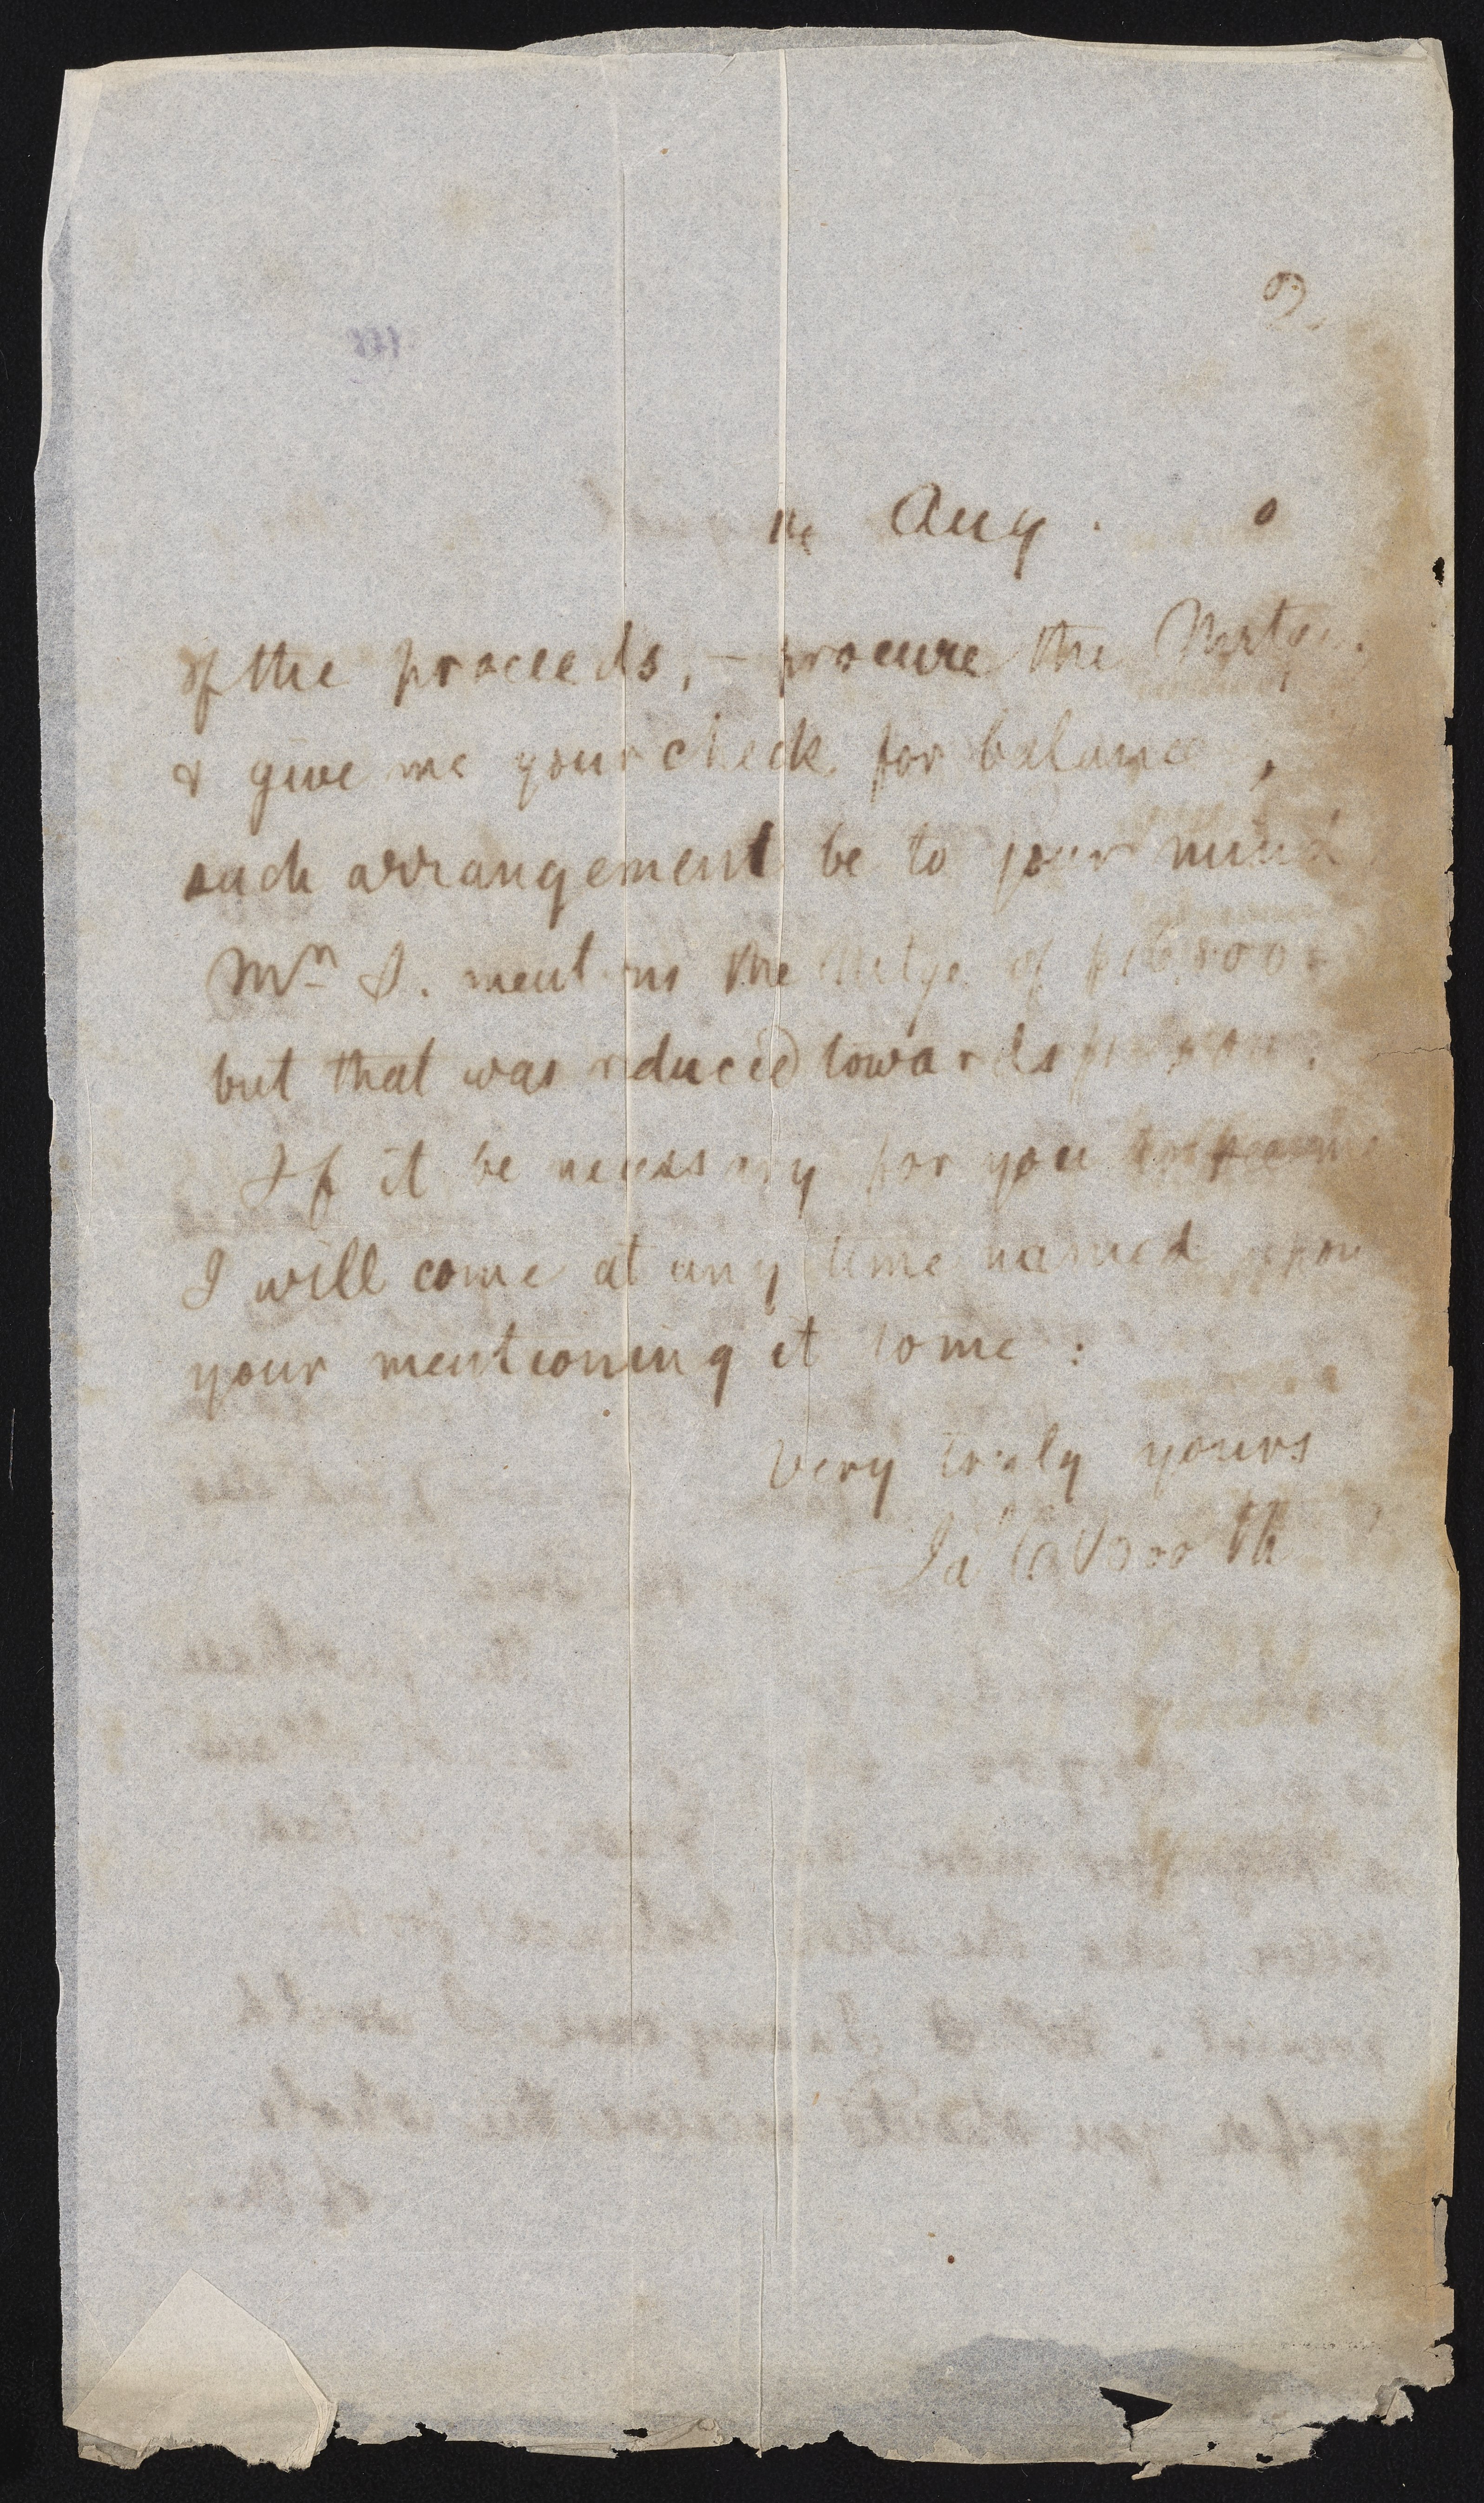 2
Aug.
of the proceeds, – procure the Mortge.
& give me your check for balance,
such arrangement be to your mind
Mrn S. ments the Mtge of $16,800
but that was reduced towards
If it be necessary for you
I will come at any time named upon
your mentioning it to me:
Very truly yours
Booth